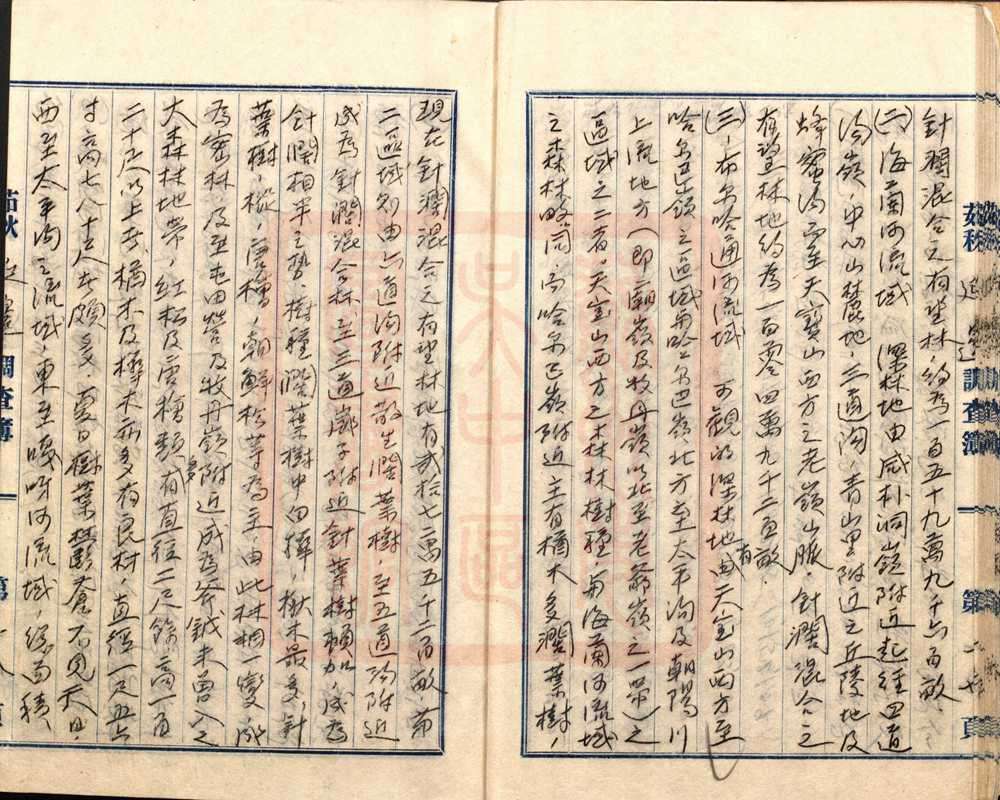 針濶混合之有望林、約為一百五十九萬九千六百畝、
(二)、海蘭河流域 深林地由威朴洞嶺附近起經四道
溝嶺、中心山麓地、三道陶、青山里附近之丘陵地及
蜂蜜溝至天寶山西方之老嶺山脈、針濶混合之
有望林地約為一百零四萬九千二百畝、
(三)、布尔哈通河流域 可觀的深林地、由天宝山西方至
哈尔巴嶺之區域與哈尔巴嶺北方至太平溝及朝陽川
上流地方(即廟嶺及牧丹嶺以北至老爺嶺之一帶)之
區域之二者、天宝山西方之森林樹種、與海蘭河流域
之森林略同、而哈尔巴嶺附近主有橘木多濶葉樹、
現在針濶混合之有望林地有貳拾七萬五千二百畝、第
二區域則由六道溝附近散生濶葉樹、至五道溝附近
成為針濶混合林、至三道崴子附近針葉樹頓加、成為
針濶相半之勢、樹種濶葉樹中白樺、楸木最多、針
葉樹、樅、唐檜、朝鮮松等為主、由此林相一變、成
為密林、及至屯田營及牧丹嶺附近成為斧鉞未曾入之
大森林地帶、紅松及唐檜類有直徑二尺餘高一百
二十尺以上者、橘木及樺木亦多有良材、直徑一尺五六
寸高七八十尺者頗多、夏日樹葉鬱蒼不見天日、
西至太平溝之流域、東至嘎呀河流域、總面積、
茲秋 延 調查簿 第 頁